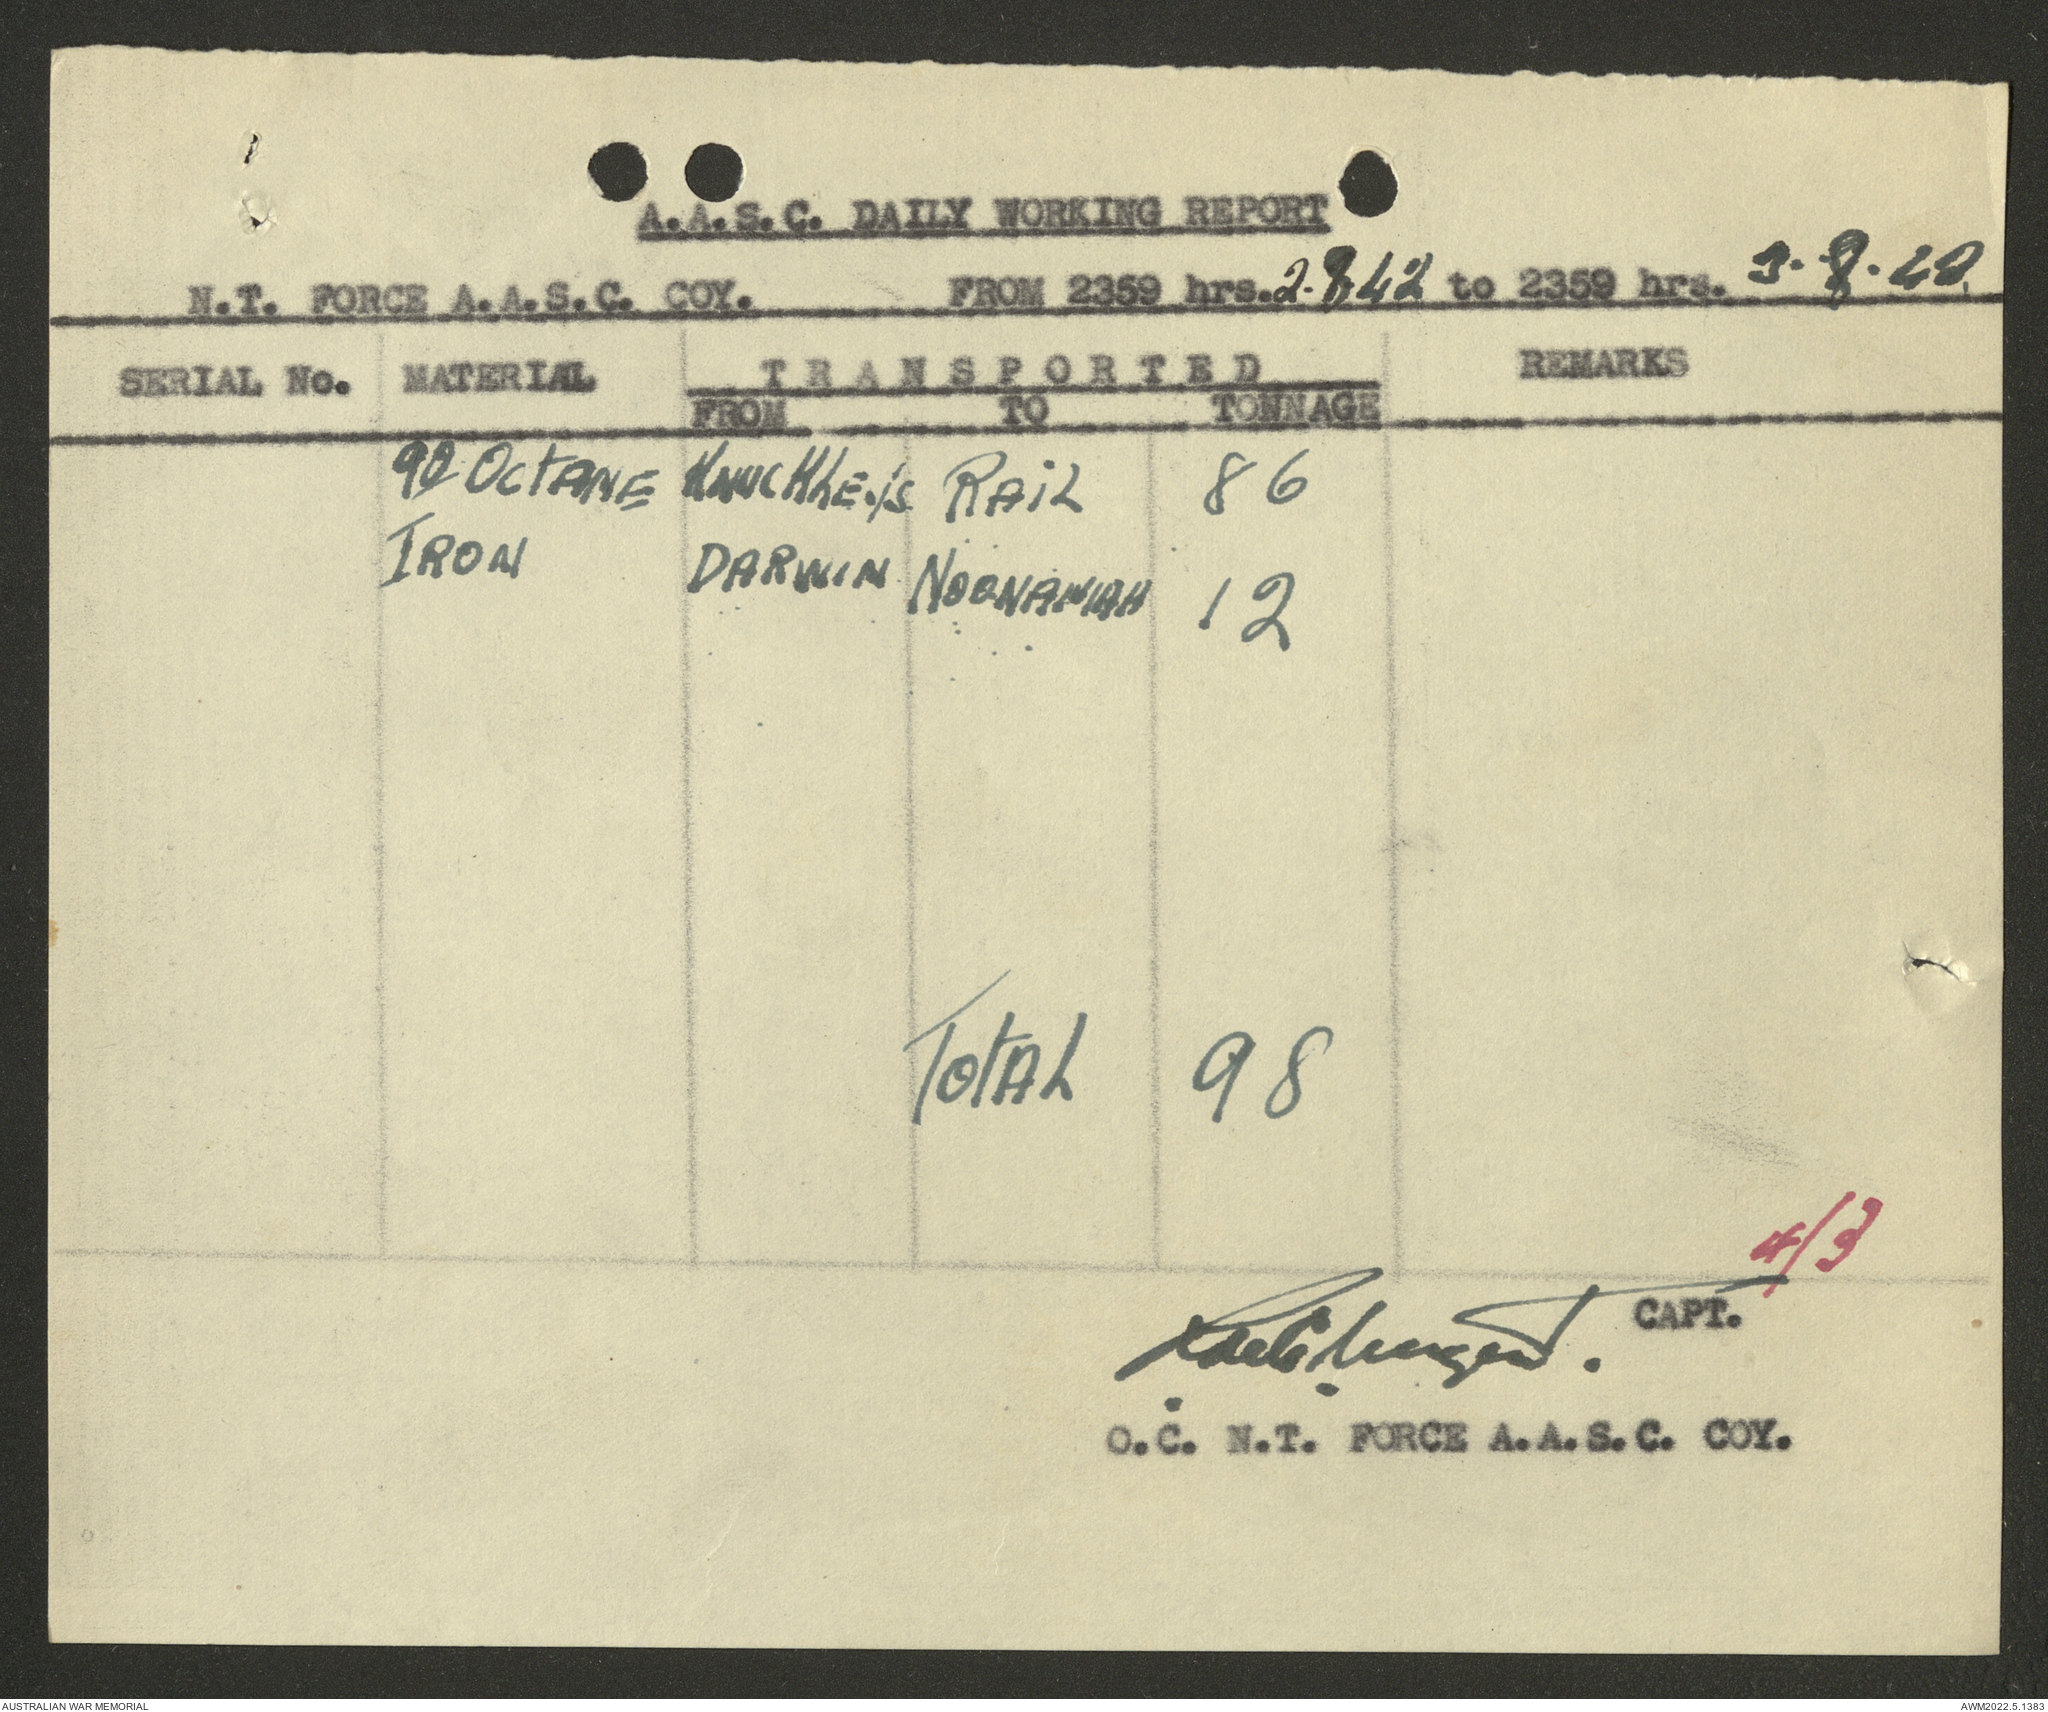 A.A.S.C. DAILY WORKING REPORT
N.T. FORCE A.A.S.C. COY. FROM 2359 hrs. 2.8.42 to 2359 hrs. 3.8.42.
SERIAL No. MATERIAL TRANSPORTED REMARKS
FROM TO TONNAGE
90 OCTANE RAIL 86
IRON DARWIN NOONAMAH 12
TOTAL 98
4/3
CAPT.
O.C. N.T. FORCE A.A.S.C. COY.
AUSTRALIAN WAR MEMORIAL AWM2022.5.1383